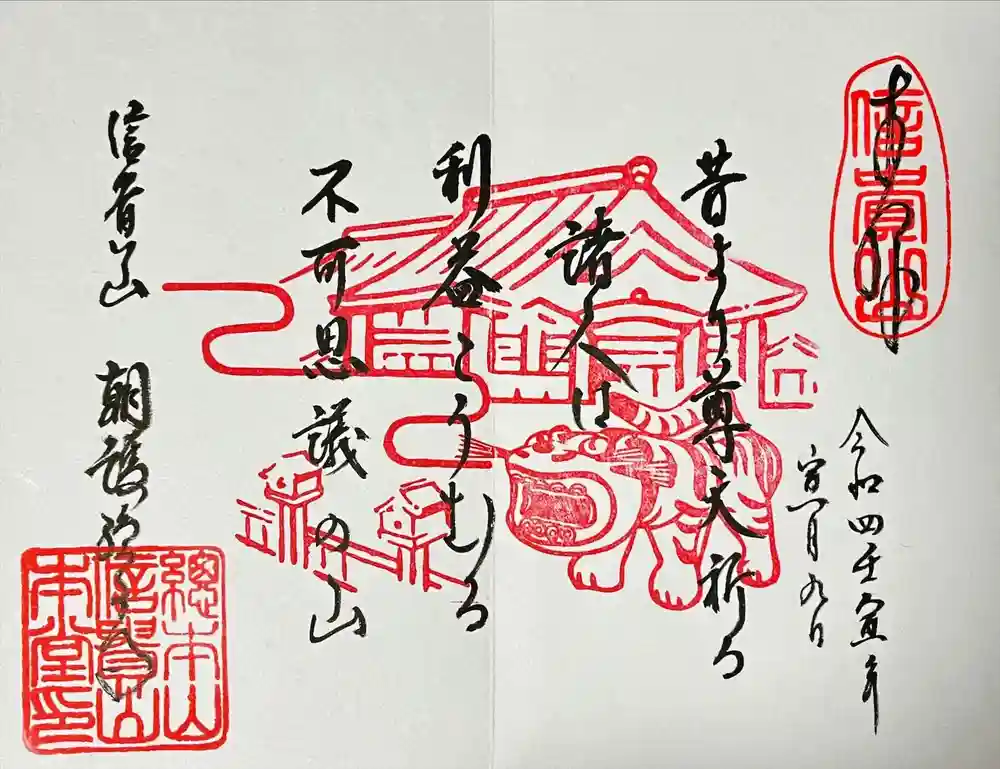 奉拝
信貴山
令和四壬寅年
月九日
昔より尊天祈る
諸人は
利益こうむる
不可思議の山
信貴山 朝護孫子寺
總本山
信貴山
本堂印